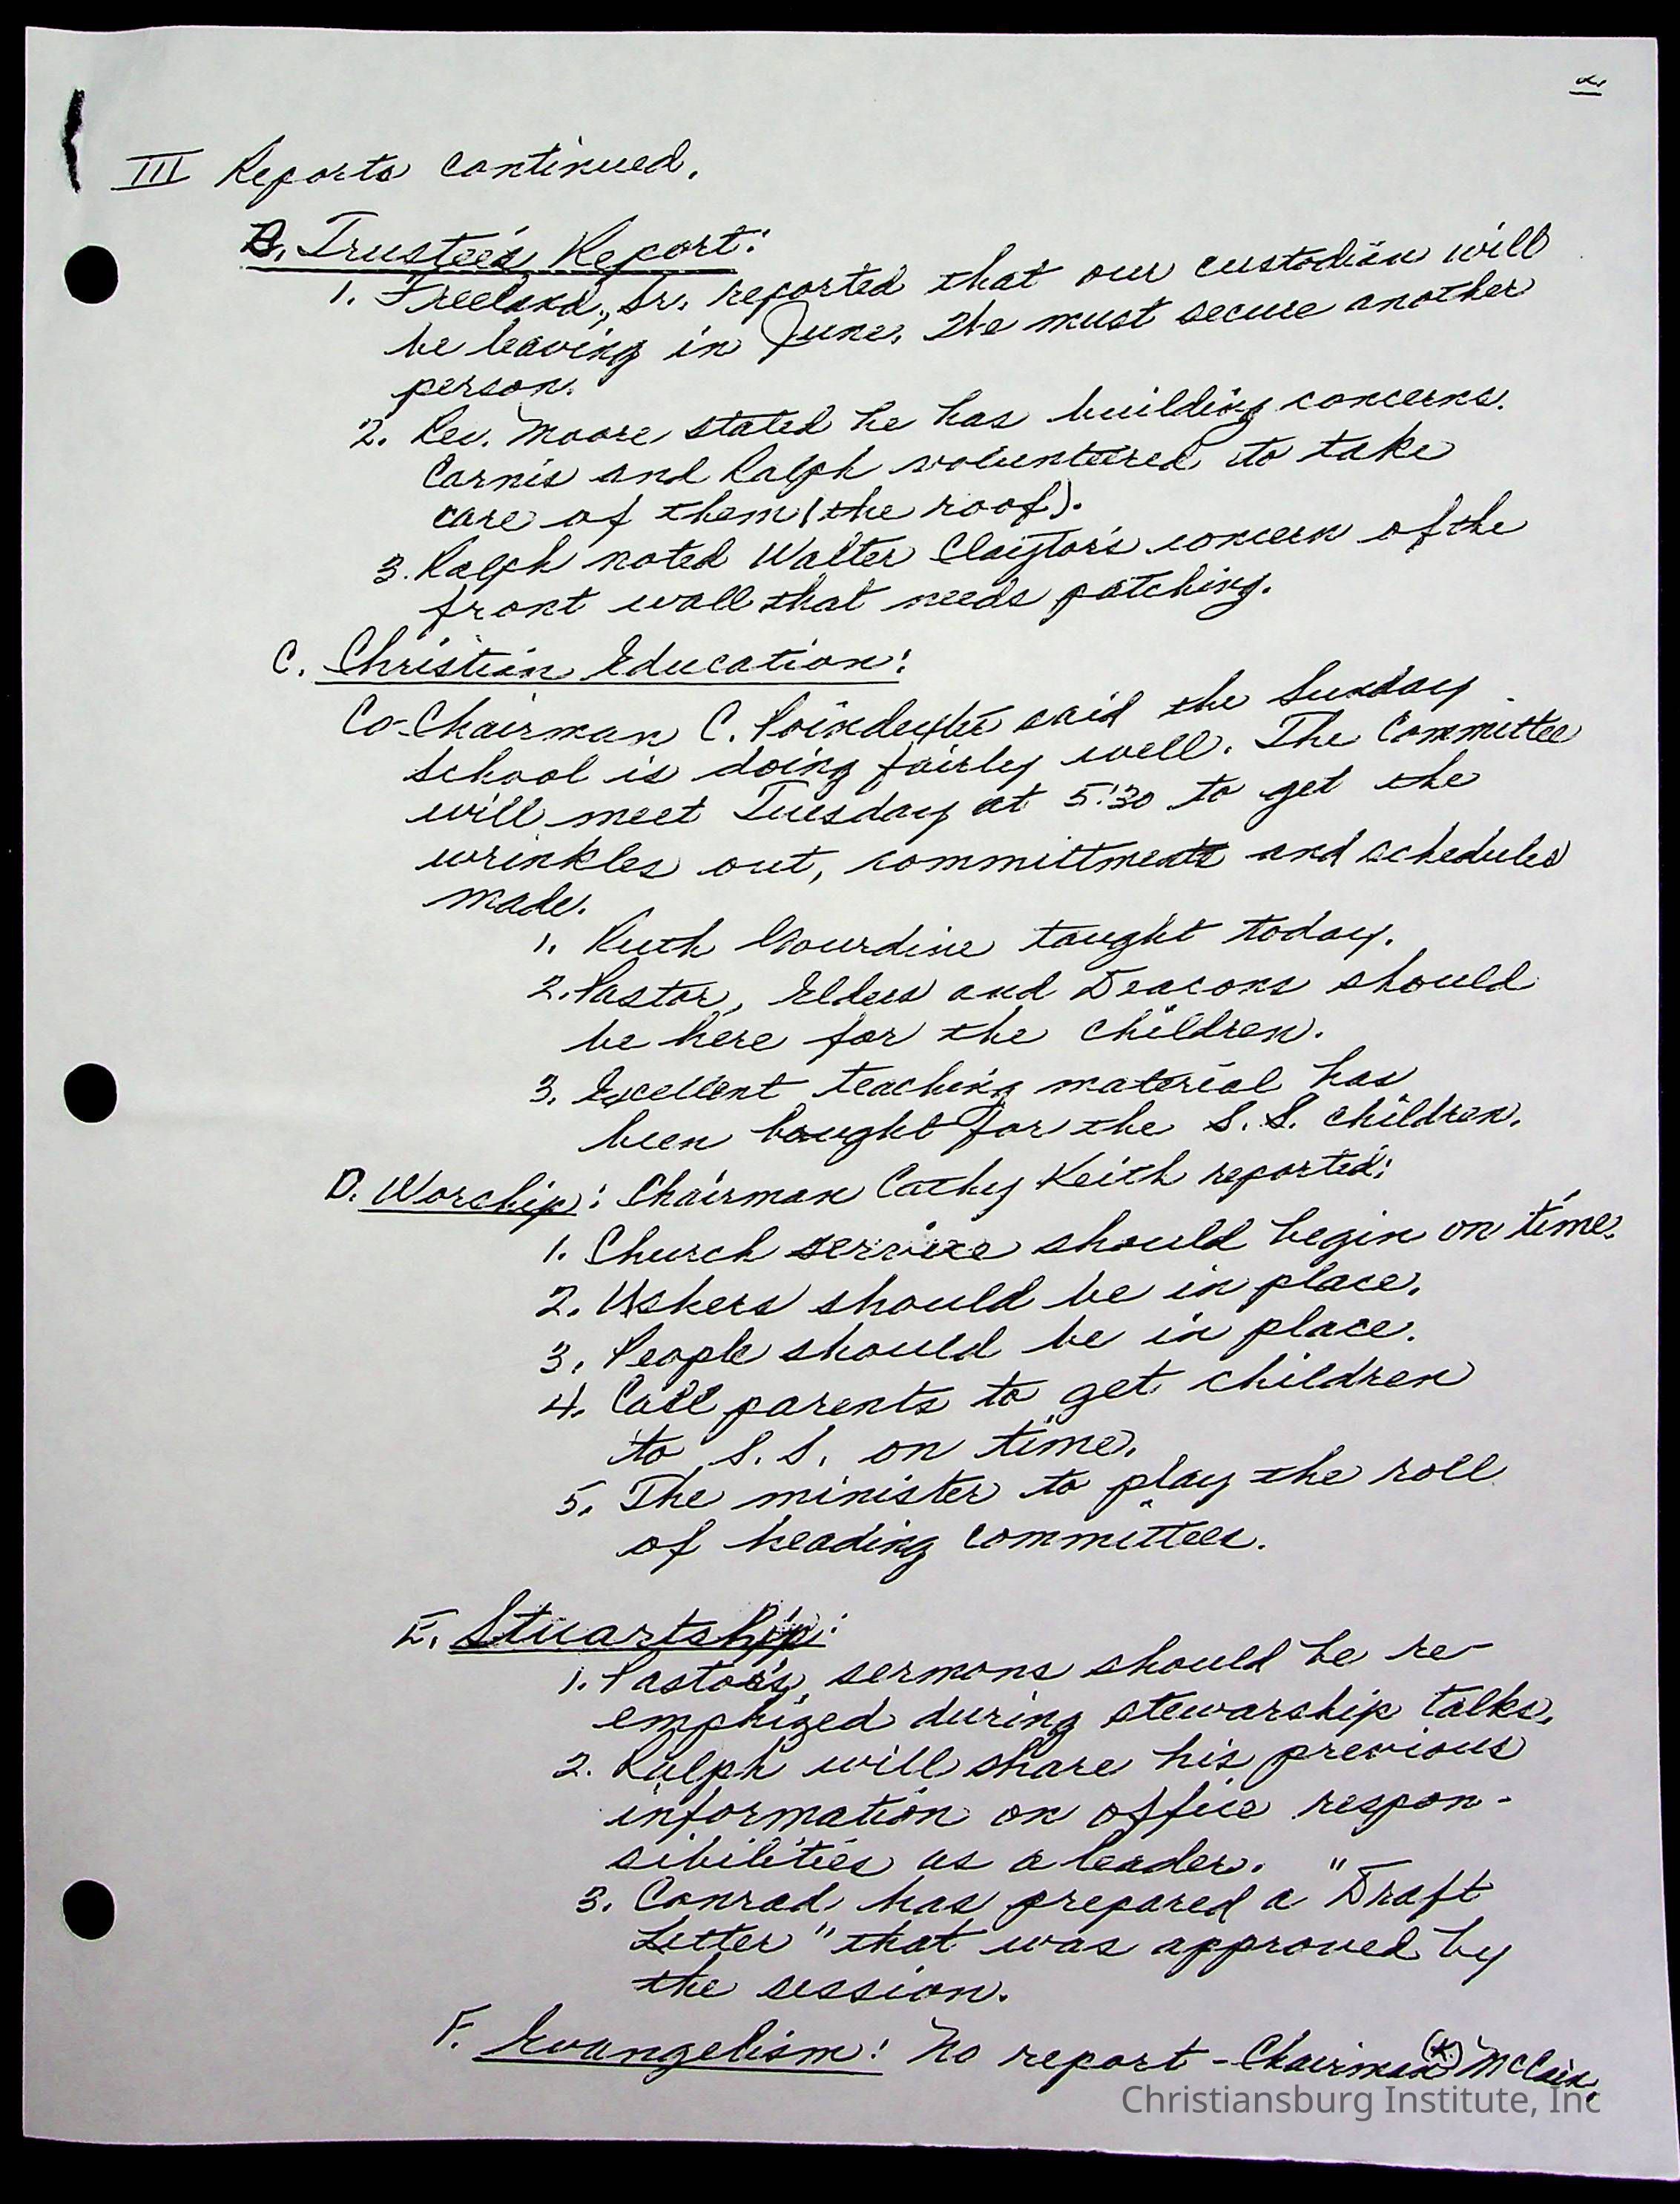 2
III Reports continued.
B. Trustee's Report:
1. Freeland, Sr. reported that our custodian will
be leaving in June. We must secure another
person.
2. Rev. Moore stated he has building concerns.
Carnis and Ralph volunteered to take
care of them (the roof).
3. Ralph noted Walter Claytor's concern of the
front wall that needs patching.
C. Christian Education:
Co-Chairman C. Poindexter said the Sunday
School is doing fairly well. The Committee
will meet Tuesday at 5:30 to get the
wrinkles out, committments and schedules
made.
1. Ruth Gourdine taught today.
2. Pastor, Elders and Deacons should
be here for the children.
3. Excellent teaching material has
been bought for the S. S. children.
D. Worship: Chairman Cathy Keith reported:
1. Church service should begin on time.
2. Ushers should be in place.
3. People should be in place.
4. Call parents to get children
to S. S. on time.
5. The minister to play the roll
of heading committees.
E. Stuartship:
1. Pastor's sermons should be re-
emphized during stewarship talks.
2. Ralph will share his previous
information on office respon-
sibilities as a leader.
3. Conrad has prepared a "Draft
Letter" that was approved by
the session.
F. Evangelism: No report - Chairman (K.) McClain.
Christiansburg Institute, Inc